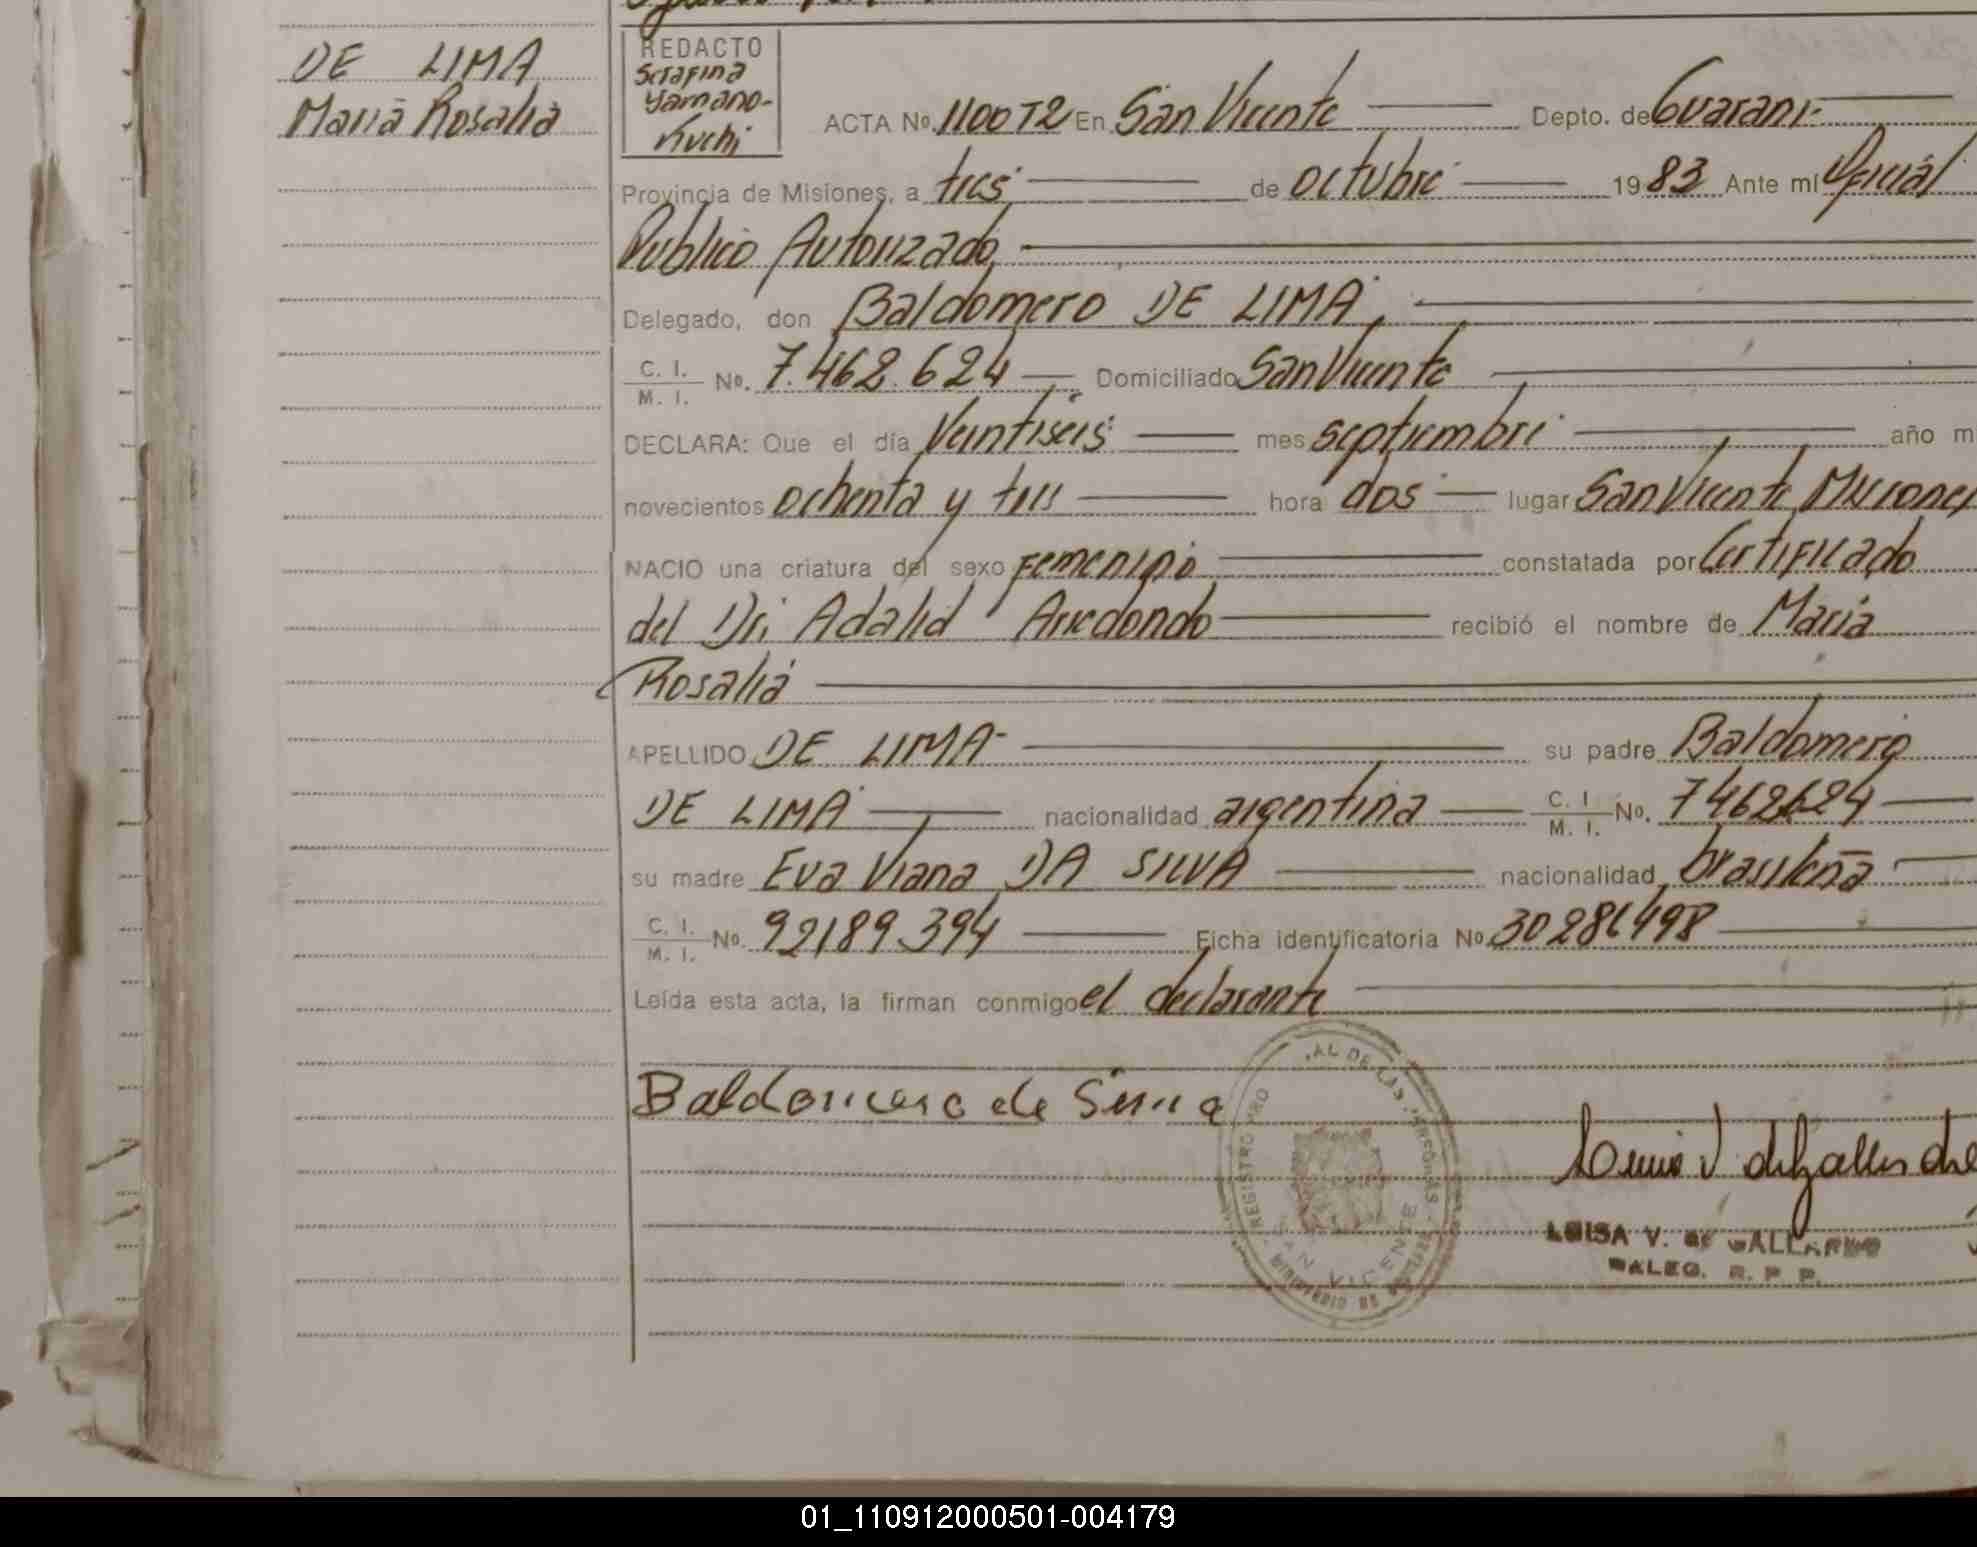 DE LIMA
Maria Rosalia
REDACTO
Serafina
Yamano-
Kuchi
ACTA No. 1100 T2 En San Vicente Depto. de Guarani-
Provincia de Misiones, a tres de octubre 1983 Ante mí Oficial
Publico Autorizado
Delegado, don Baldomero DE LIMA,
C. I.
M. I. No. 7.462.624 Domiciliado San Vicente
DECLARA: Que el día Veintiseis mes septiembre año m
novecientos ochenta y tres hora dos lugar San Vicente Misiones
NACIO una criatura del sexo femenino constatada por Certificado
del Dr. Adalid Arredondo recibió el nombre de Maria
Rosalia
APELLIDO DE LIMA- su padre Baldomero
DE LIMA nacionalidad argentina C. I. M. I. No. 7462624
su madre Eva Viana DA SILVA nacionalidad brasileña
C. I.
M. I. No. 92189.394 Ficha identificatoria No. 30286498
Leída esta acta, la firman conmigo el declarante
Baldomero de
AL DE LAS PERSONAS
REGISTRO
SAN VICENTE
MINISTERIO DE
LUISA V. de GALLARDO
DALEG. R. P. P.
01_110912000501-004179